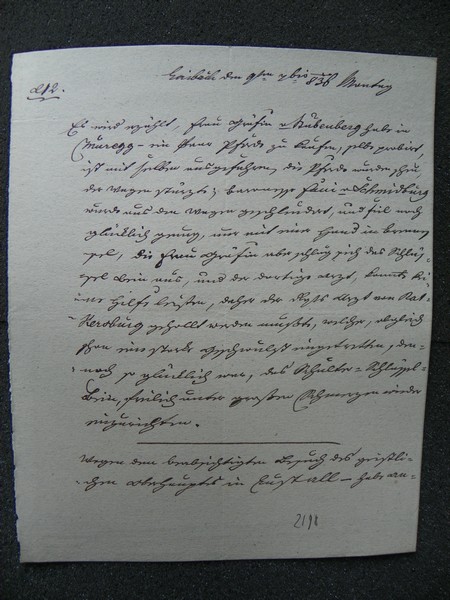 Laibach den 9ten 7bris 838 Montag
212.
Es wird erzählt, Frau Gräfin v Stubenberg habe in
Mureck ein Paar Pferde zu kaufen, selbe probirt,
ist mit selben ausgefahren, die Pferde wurden scheu,
der Wagen stürzte; Baronesse Fani v Schmidburg
wurde aus dem Wagen geschleudert, und fiel noch
glücklich genug, nur mit einer Hand in
die Frau Gräfin aber schlug sich das Schlüs-
sel Bein aus, und der dortige Arzt, konnte kei-
ne Hilfe leisten, daher der Arzt von Rat-
kersburg gehollt werden mußte, welcher, obgleich
schon eine starke Geschwulst eingetretten, den-
noch so glücklich war, das Schulter-Schlüssel-
Bein, freilich unter großen Schmerzen wieder
einzurichten.
Wegen dem beabsichtigten Besuch des geistli-
chen Oberhauptes in Lustall — habe an-
2198